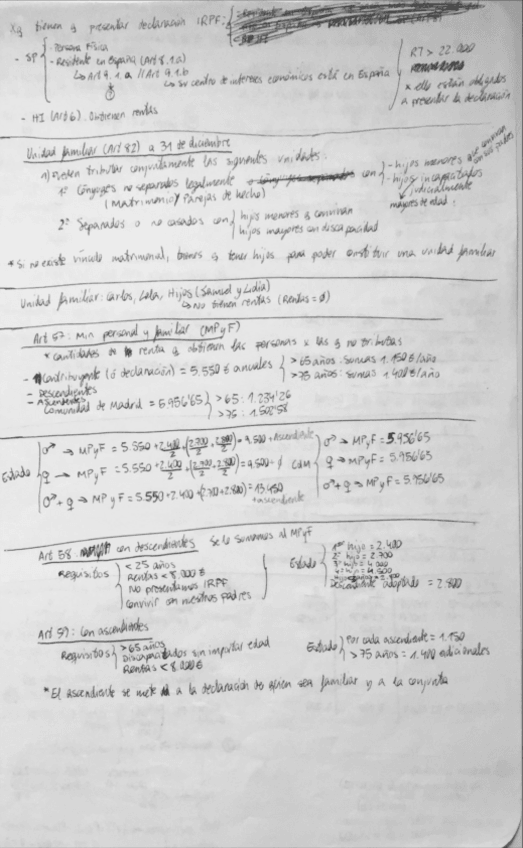 xq tienen q presentar declaración IRPF:
- SP
- Persona Física
- Residente en España (Art 8.1.a)
↳ Art 9.1.a // Art 9.1.b
↳ Su centro de intereses económicos está en España
RT > 22.000
x ello están obligados
a presentar la declaración
- HI (Art 6). Obtienen rentas
Unidad familiar (Art 82) a 31 de diciembre
Pueden tributar conjuntamente las siguientes unidades:
1º Cónyuges no separados legalmente con
(Matrimonio y Parejas de hecho)
- hijos menores que convivan con los padres
- hijos incapacitados judicialmente
mayores de edad
2º Separados o no casados con
hijos menores q convivan
hijos mayores con discapacidad
* Si no existe vínculo matrimonial, tienes q tener hijos para poder constituir una unidad familiar
Unidad familiar: Carlos, Lola, Hijos (Samuel y Lidia)
↳ No tienen rentas (Rentas = Ø)
Art 57: Min personal y familiar (MPyF)
* Cantidades de renta q obtienen las personas x las q no tributas
- Contribuyente (ó declaración) = 5.550 € anuales
> 65 años: Sumas 1.150 €/año
> 75 años: Sumas 1.400 €/año
- Descendientes
- Ascendientes
Comunidad de Madrid = 5.956'65
> 65: 1.234'26
> 75: 1.502'58
Estado
♂ → MPyF = 5.550 + 2.400/2 + (2.700/2 + 2.800/2) = 9.500 + Ascendiente
♀ → MPyF = 5.550 + 2.400/2 + (2.700/2 + 2.800/2) = 9.500 + Ø
♂ + ♀ → MPyF = 5.550 + 2.400 + (2.700 + 2.800) = 13.450
+ ascendiente
CAM
♂ → MPyF = 5.956'65
♀ → MPyF = 5.956'65
♂ + ♀ → MPyF = 5.956'65
Art 58 con descendientes Se lo sumamos al MPyF
Requisitos
< 25 años
Rentas < 8.000 €
No presentamos IRPF
Convivir con nuestros padres
Estado
1er hijo = 2.400
2º hijo = 2.700
3º hijo = 4.000
4º hijo = 4.500
Descendiente adoptado = 2.800
Art 59: Con ascendientes
Requisitos
> 65 años
Discapacitados sin importar edad
Rentas < 8.000 €
Estado
Por cada ascendiente = 1.150
> 75 años = 1.400 adicionales
* El ascendiente se mete a la declaración de quien sea familiar y a la conjunta